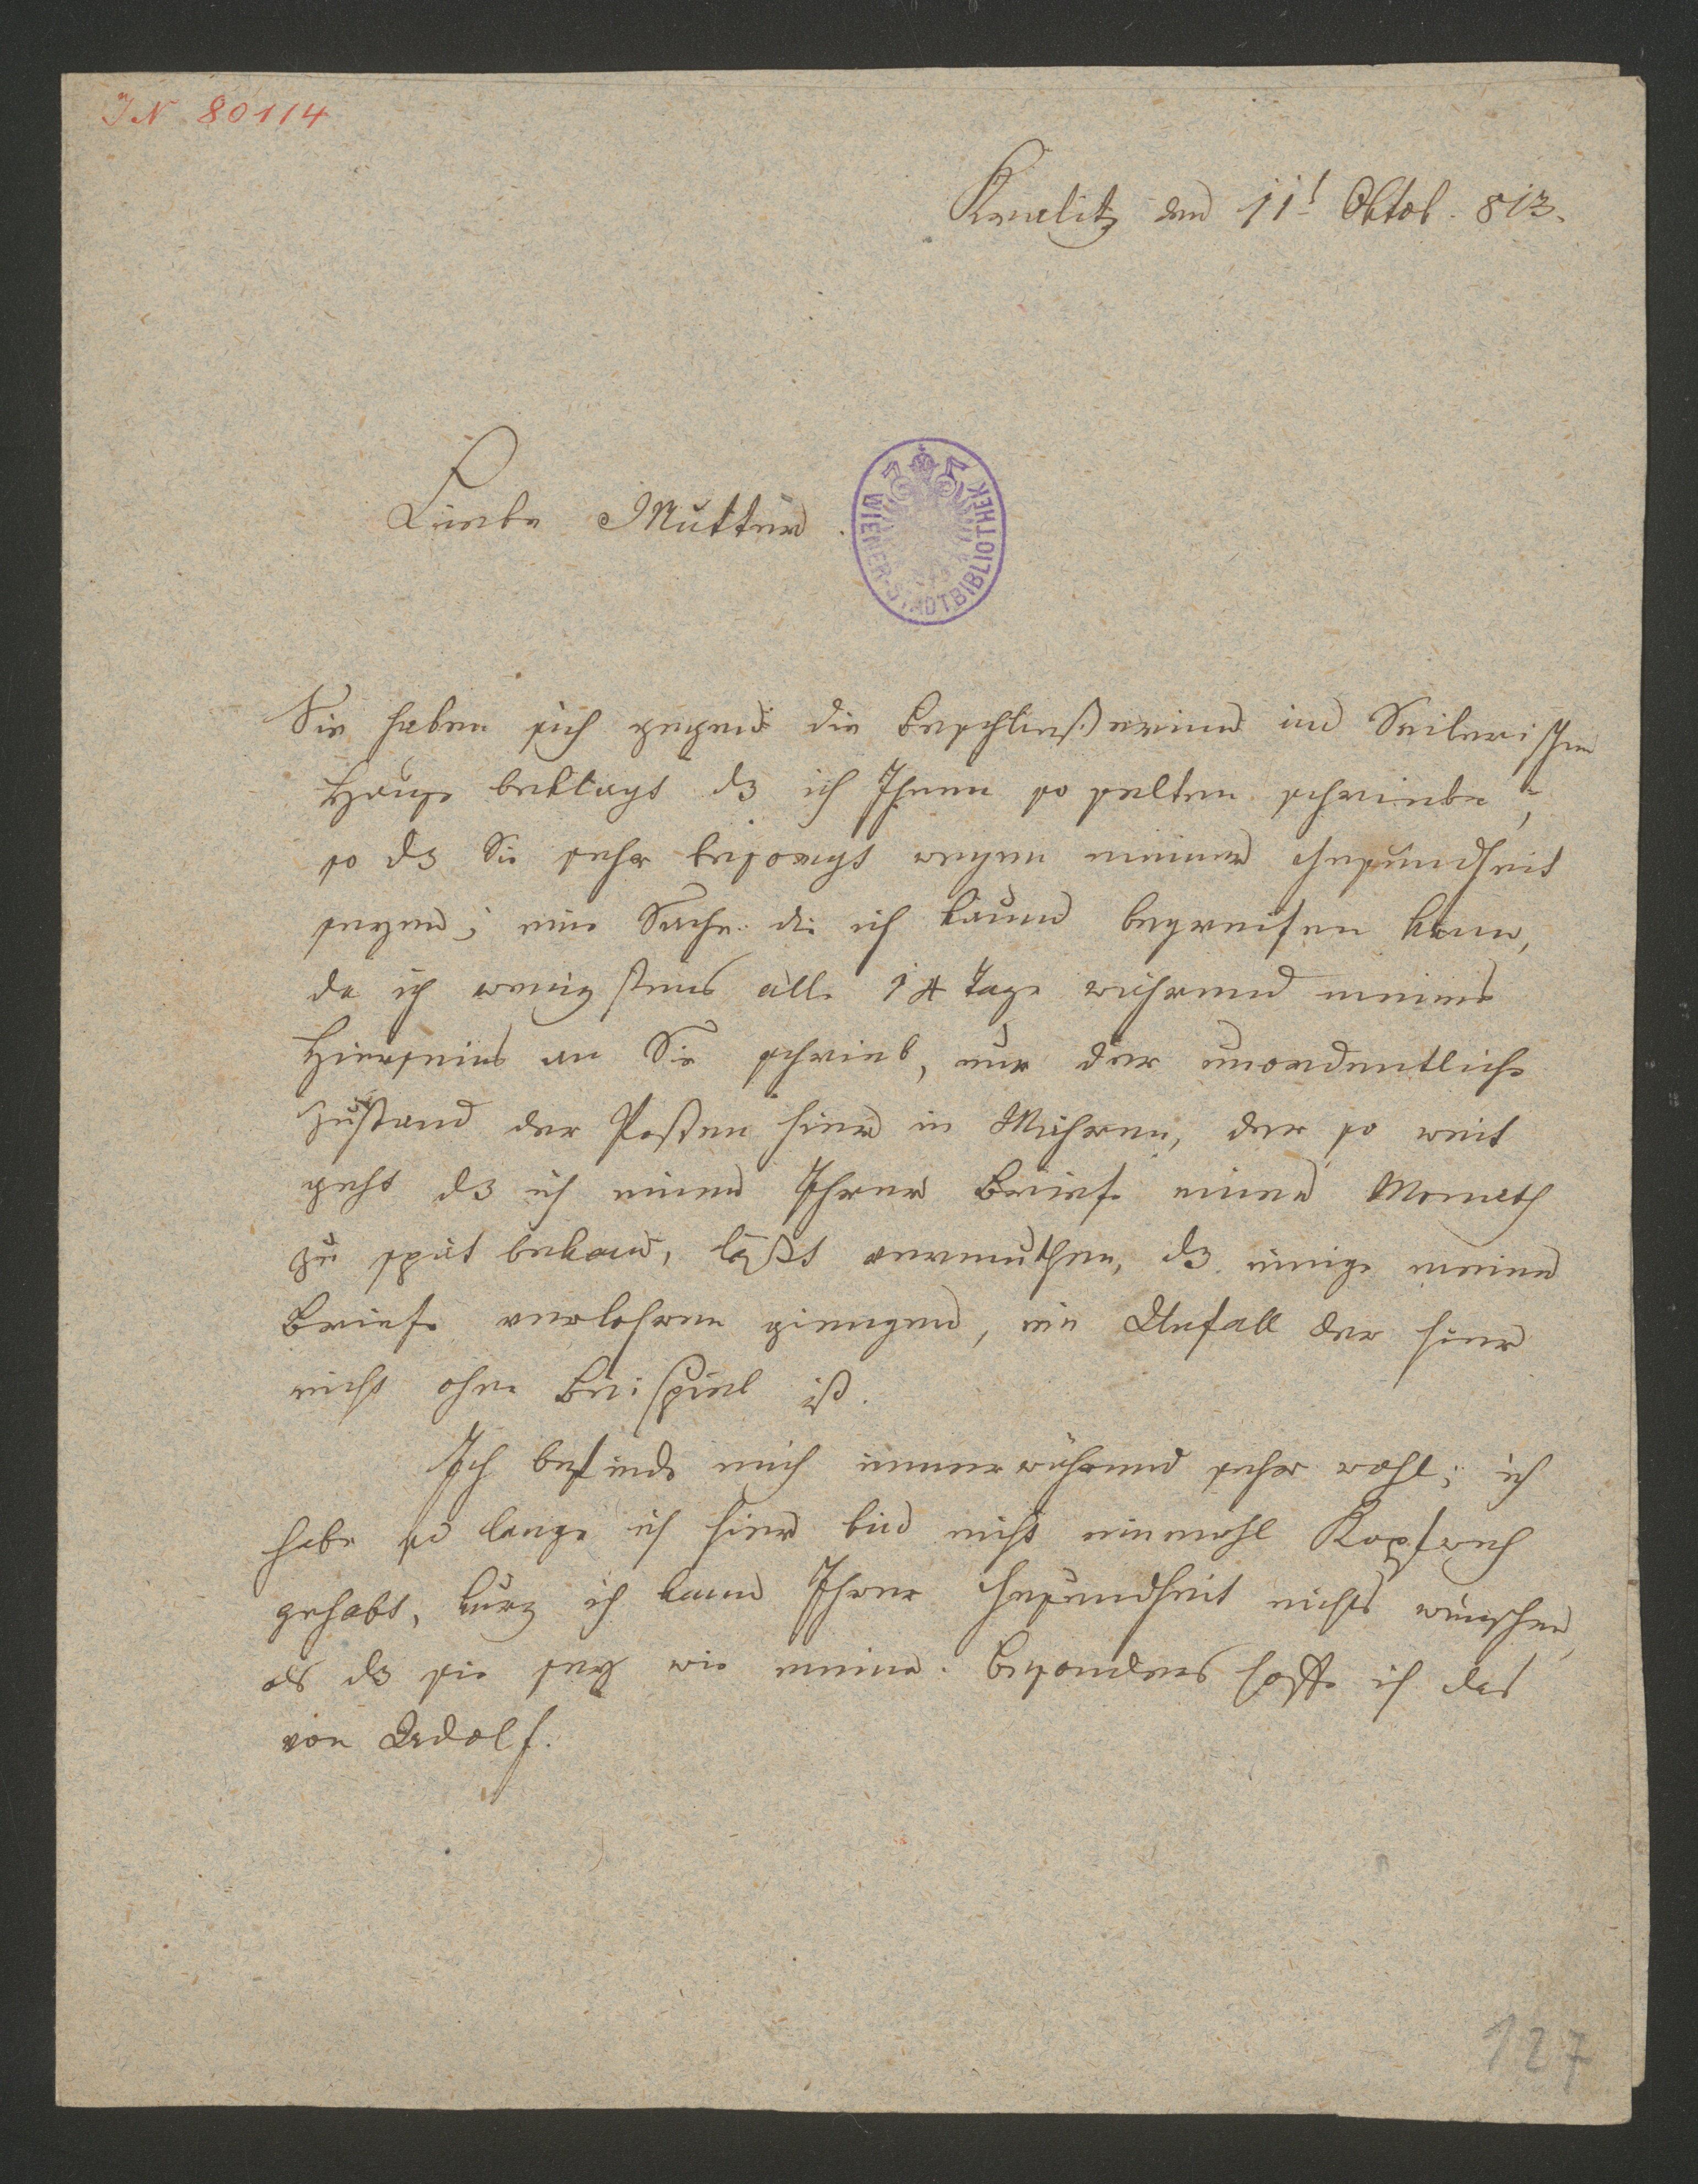 JN 80114
Kralitz am 11t Oktob. 813.
Liebe Mutter.
WIENER-STADTBIBLIOTHEK
Sie haben sich gegen die Beschließerinn im Seilerischen
Hause beklagt dß ich Ihnen so selten schriebe,
so dß Sie sehr besorgt wegen meiner Gesundheit
seyen; eine Sache die ich kaum begreifen kann,
da ich wenigstens alle 14 Tage während meines
Hierseins an Sie schrieb, nur der unordentliche
Zustand der Posten hier in Mähren, der so weit
geht dß ich einen Ihrer Briefe einen Monath
zu spät bekam, läßt vermuthen, dß einige meiner
Briefe verlohren giengen, ein Unfall der hier
nicht ohne Beispiel ist.
Ich befinde mich immerwährend sehr wohl; ich
habe so lange ich hier bin nicht einmahl Kopfweh
gehabt, kurz ich kann Ihrer Gesundheit nichts wünschen,
als dß sie sey wie meine. Besonders hoffe ich das
von Adolf.
127